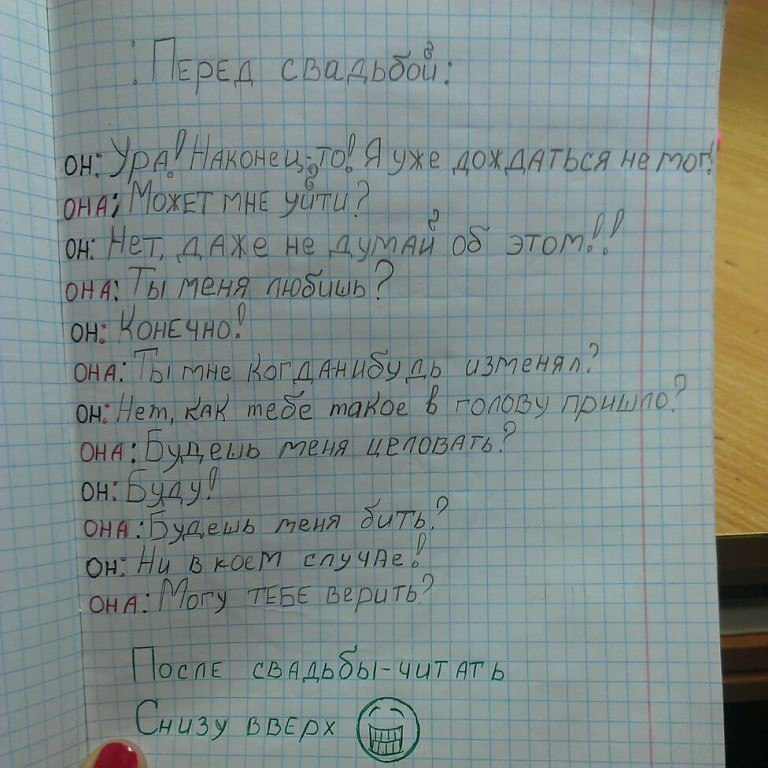 Перед свадьбой:
он: Ура! Наконец-то! Я уже дождаться не мог!
она: Может мне уйти?
он: Нет, даже не думай об этом!!
она: Ты меня любишь?
он: Конечно!
она: Ты мне когданибудь изменял?
он: Нет, как тебе такое в голову пришло?
она: Будешь меня целовать?
он: Буду!
она: Будешь меня бить?
он: Ни в коем случае!
она: Могу тебе верить?
После свадьбы-читать
Снизу вверх